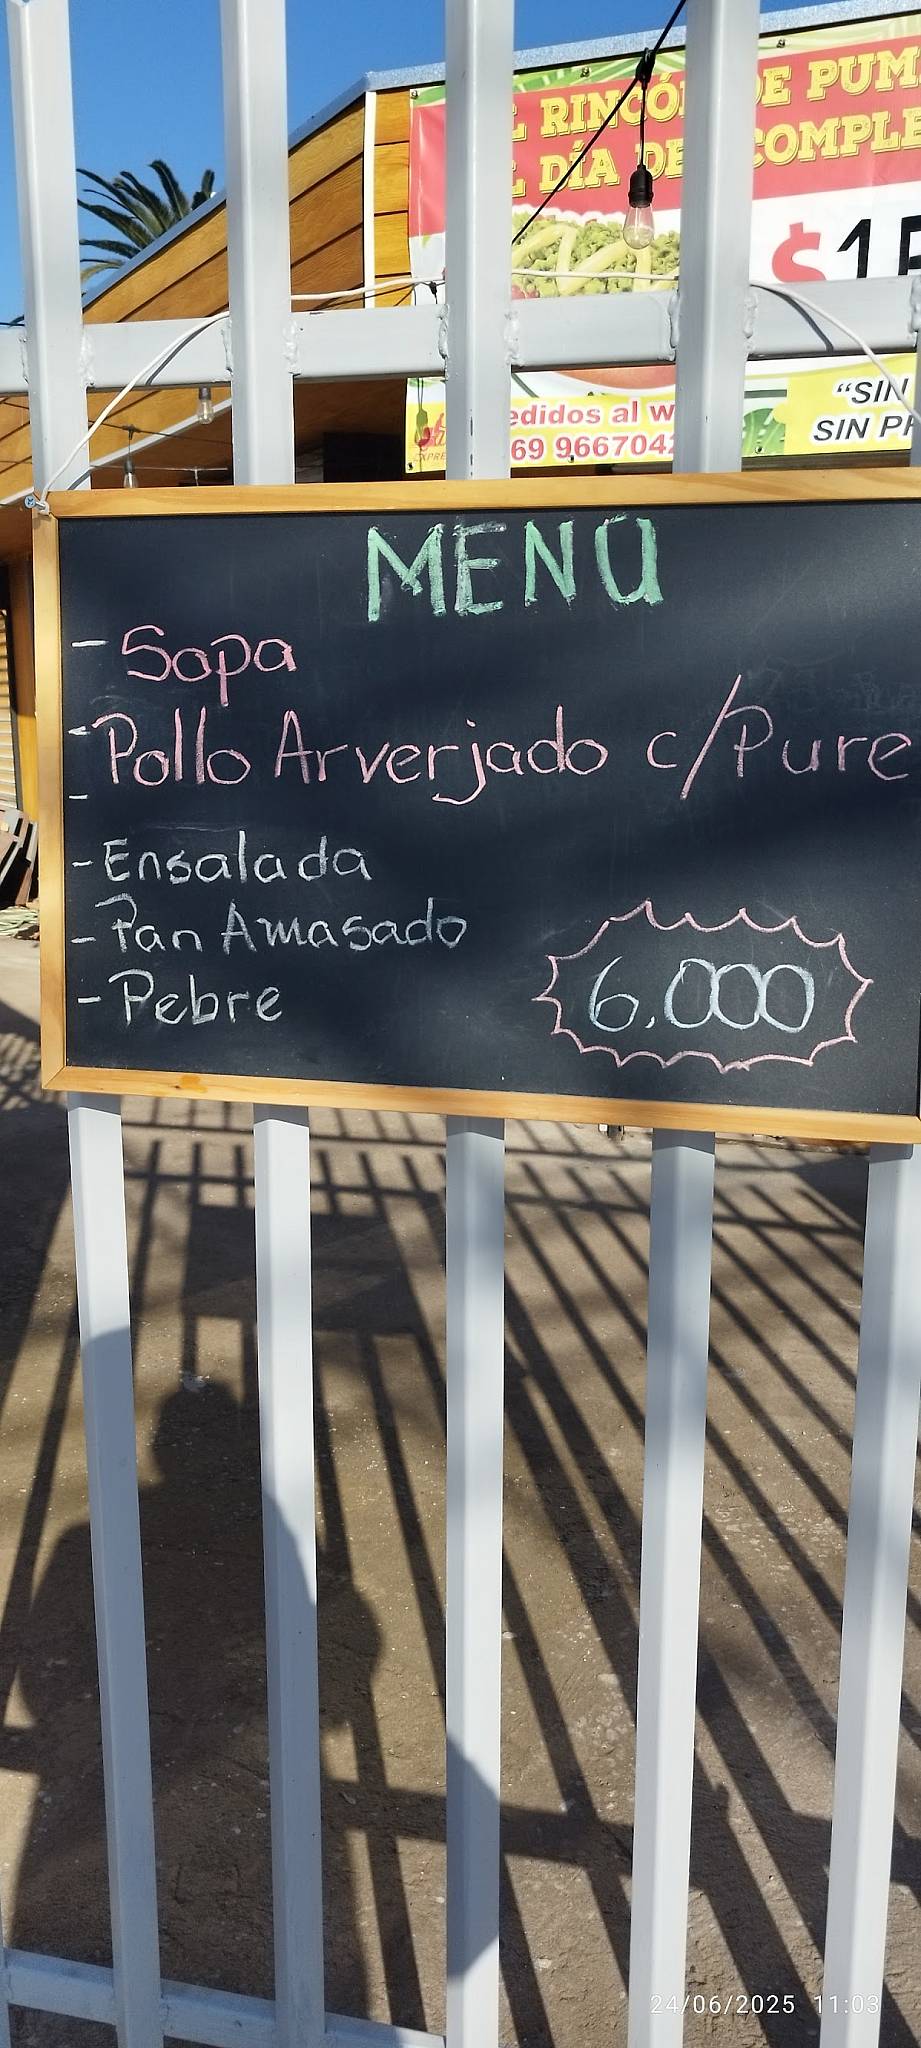 RINCÓN DE PUM
DÍA DE COMPLE
$1
edidos al w
69 966704
"SIN
SIN PR
MENU
- Sopa
- Pollo Arverjado c/Pure
-
- Ensalada
- Pan Amasado
- Pebre
6.000
24/06/2025 11:03